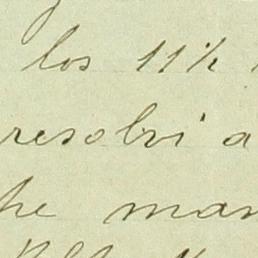 los 11½
resolvi a
he man